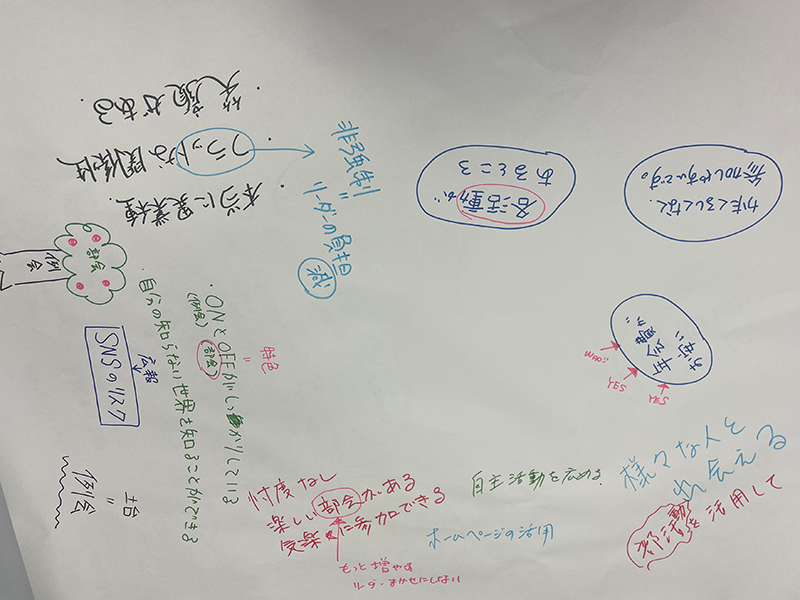 ・笑顔がある
・フラットな関係性
・本当に異業種
非強制
〃
リーダーの負担
減
各活動が
あるところ
かたくるしくなく、
参加しやすいです。
部会
例会
・ONとOFFがしっかりしている
(例会)(部会)
〃
特色
・自分の知らない世界を知ることができる
広報
SNSのリスク
土台
〃
例会
年会費が
お安い
WOW!!
YES
YES
忖度なし
楽しい部会がある
気楽に参加できる
もっと増やす
リーダーまかせにしない
自主活動を広める
ホームページの活用
様々な人と
出会える
部活動を活用して